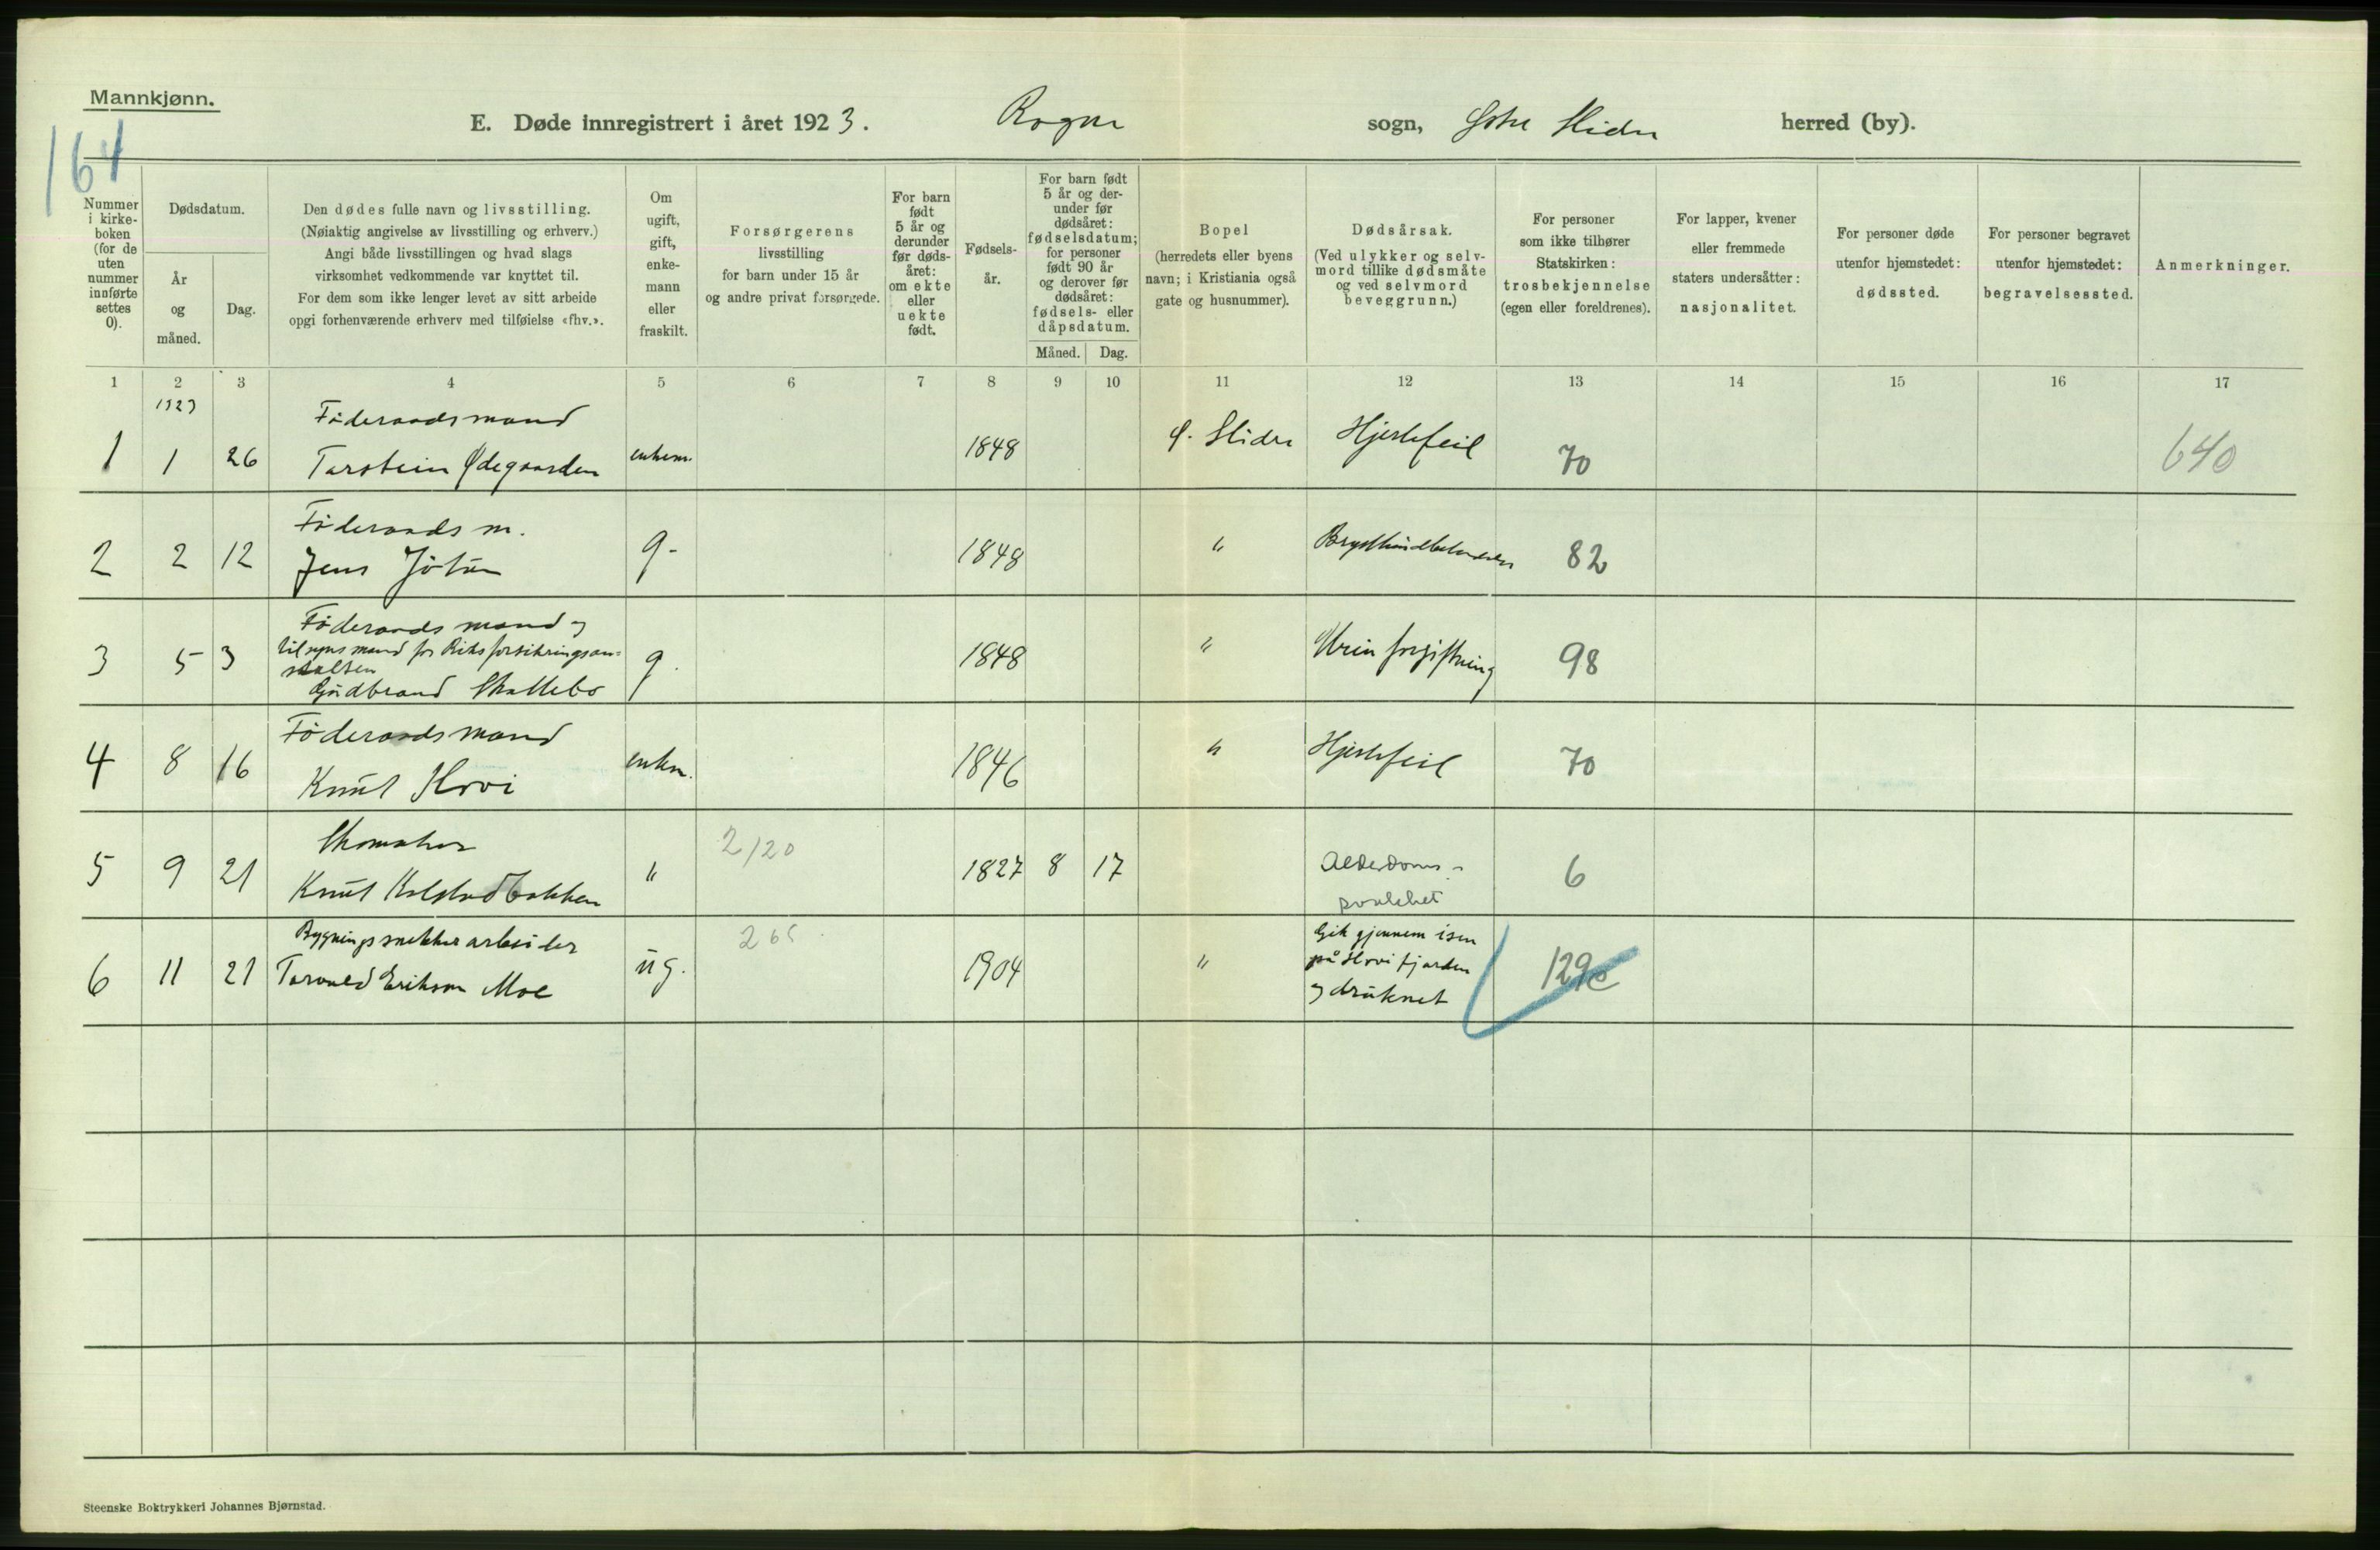 Mannkjønn.
164
E. Døde innregistrert i året 1923. Rogne sogn, Østre Slidre herred (by).
Nummer i kirkeboken (for de uten nummer innførte settes 0).
Dødsdatum.
År og måned.
Dag.
Den dødes fulle navn og livsstilling.
(Nøiaktig angivelse av livsstilling og erhverv.)
Angi både livsstillingen og hvad slags
virksomhet vedkommende var knyttet til.
For dem som ikke lenger levet av sitt arbeide
opgi forhenværende erhverv med tilføielse «fhv.».
Om ugift, gift, enkemann eller fraskilt.
Forsørgerens
livsstilling
for barn under 15 år
og andre privat forsørgede.
For barn født 5 år og derunder før dødsåret: om ekte eller uekte født.
Fødselsår.
For barn født 5 år og derunder før dødsåret: fødselsdatum; for personer født 90 år og derover før dødsåret: fødsels- eller dåpsdatum.
Måned. Dag.
Bopel
(herredets eller byens
navn; i Kristiania også
gate og husnummer).
Dødsårsak.
(Ved ulykker og selvmord tillike dødsmåte og ved selvmord beveggrunn.)
For personer
som ikke tilhører
Statskirken:
trosbekjennelse
(egen eller foreldrenes).
For lapper, kvener
eller fremmede
staters undersåtter:
nasjonalitet.
For personer døde
utenfor hjemstedet:
dødssted.
For personer begravet
utenfor hjemstedet:
begravelsessted.
Anmerkninger.
1 2 3 4 5 6 7 8 9 10 11 12 13 14 15 16 17
1923
Föderaadsmand
1 1 26 Tarstein Ødegaarden enkem. 1848 Ø. Slidre Hjertefeil 70 640
Föderaads m.
2 2 12 Jens g. 1848 " 82
Föderaadsmand og
tilsynsmand for Riksforsikringsan=
stalten
3 5 3 Gudbrand Skattebo g. 1848 " Urinforgiftning 98
Föderaadsmand
4 8 16 Knut Hovi enkm. 1846 " Hjertefeil 70
Skomaker 2/20
5 9 21 Knut Kolstadbakken " 1827 8 17 Alderdoms-
svakhet 6
Bygningssnekkerarbeider 265
6 11 21 Torvald Erikson Moe ug. 1904 " Gik gjennem isen
på Hovifjorden
og druknet 129c
Steenske Boktrykkeri Johannes Bjørnstad.